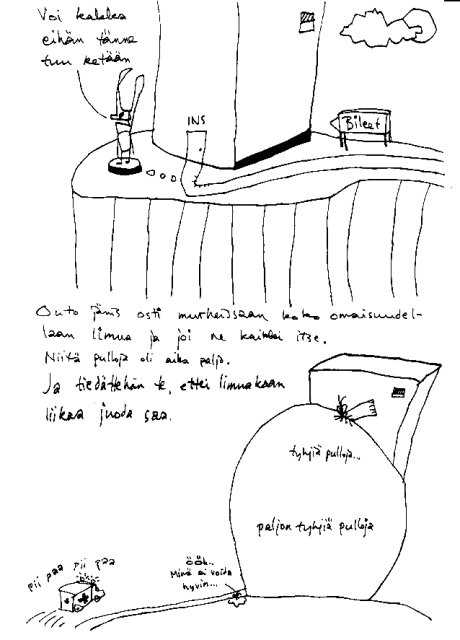 Voi kalalea
eihän tänne
tuu ketään
INS
Bileet
Outo jänis osti murheissaan koko omaisuudel-
laan limua ja joi ne kaikki itse.
Niitä pulloja oli aika paljo.
Ja tiedättehän te, ettei limuakaan
liikaa juoda saa.
tyhjiä pulloja...
paljon tyhjiä pulloja
pii paa pii paa
öök..
Minä ei voida
hyvin...